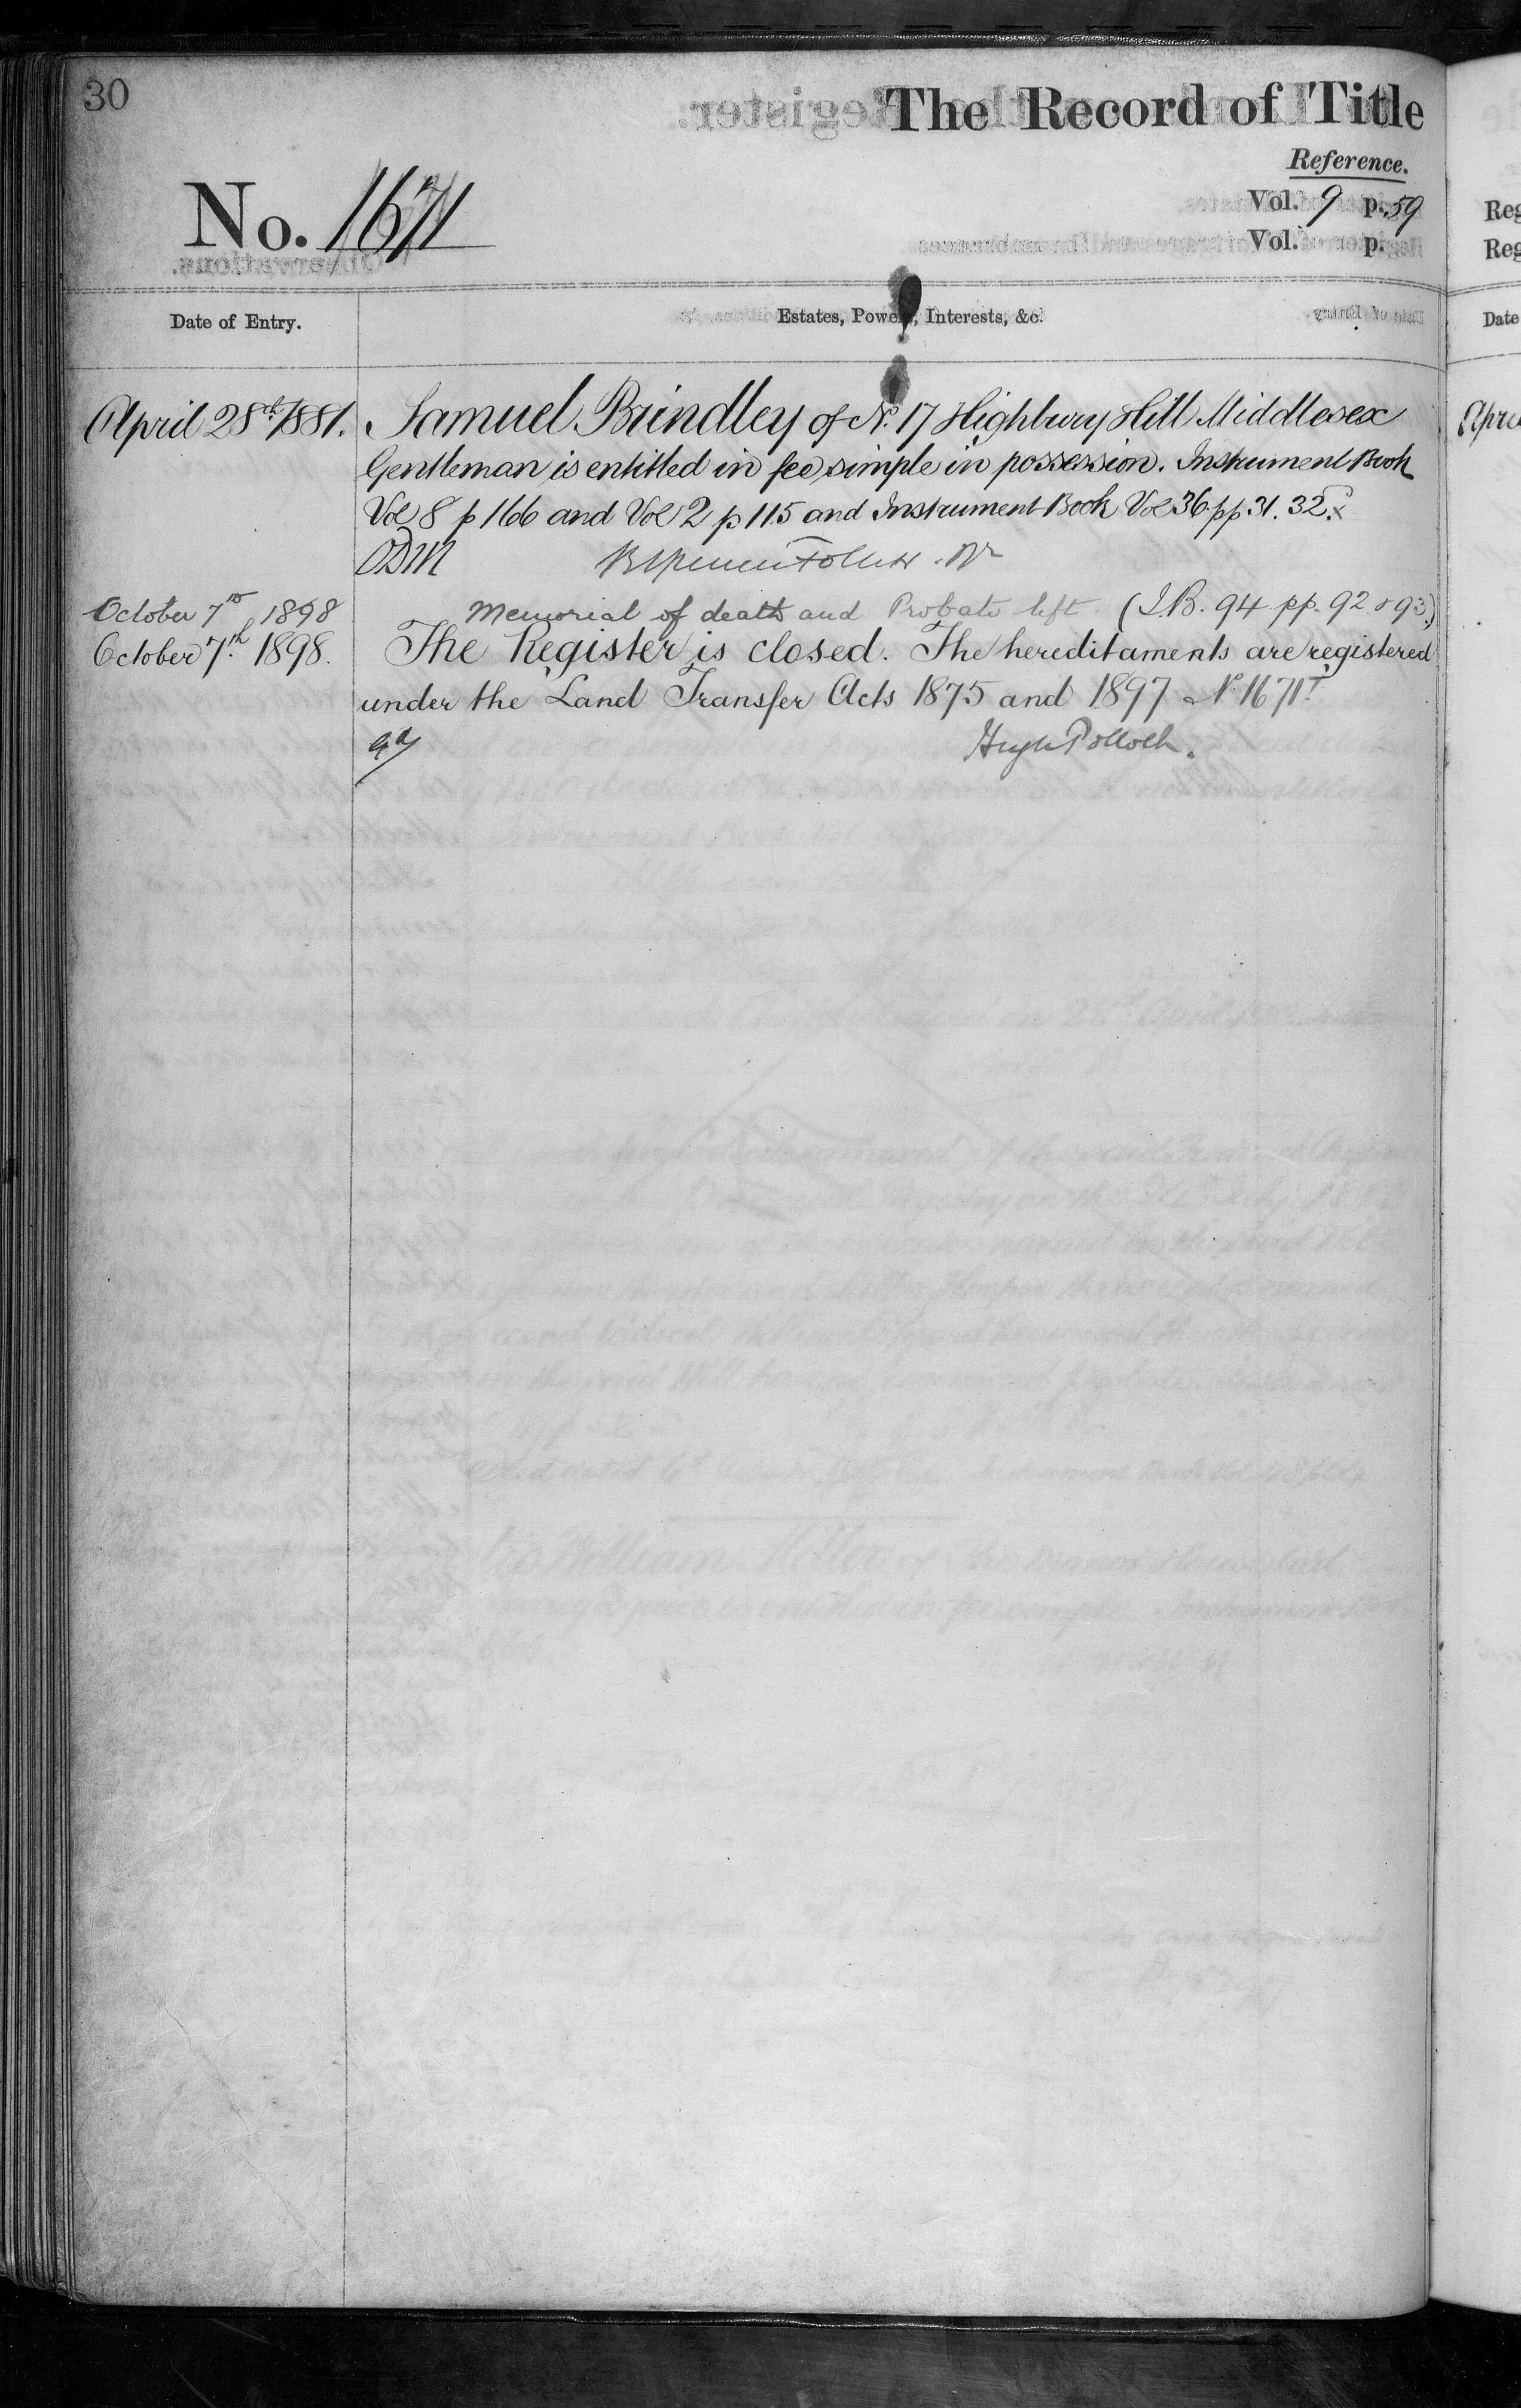 30
The Record of Title
Reference.
No. 1671
Vol. 9 p. 59
Vol. p.
Date of Entry.
Estates, Powers, Interests, &c.
April 28th 1881. Samuel Brindley of No. 17 Highbury Hill Middlesex
Gentleman is entitled in fee simple in possession. Instrument Book
Vol 8 p 166 and Vol 2 p 115 and Instrument Book Vol 36 pp 31. 32.
October 7th 1898 Memorial of death and Probate left (I.B. 94 pp. 92 & 93.)
October 7th 1898. The Register is closed. The hereditaments are registered
under the Land Transfer Acts 1875 and 1897 No. 1671T
Hugh Pollock.
Reg
Reg
Date